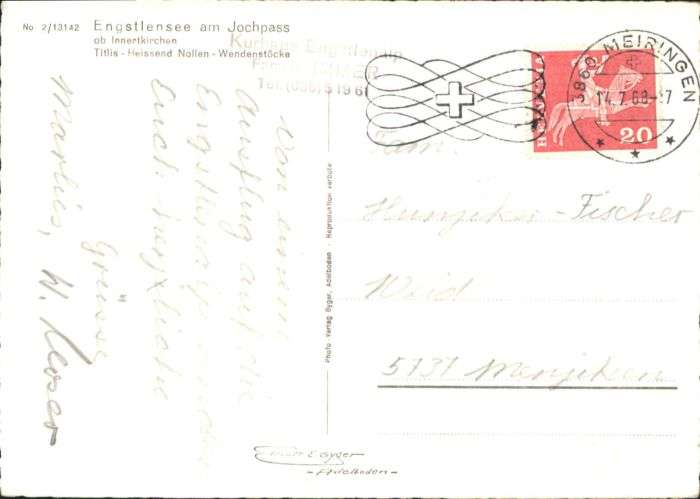 No 2/13142 Engstlensee am Jochpass
ob Innertkirchen
Titlis - Heissend Nollen - Wendenstöcke
Kurhaus Engstlenalp
Fam. IMMER
Tel. (036) 5 19 61
Von einem
Ausflug auf die
Engstlenalp senden
Euch herzliche
Grüsse
Marlies, W. Moser
Photo-Verlag Gyger, Adelboden - Reproduktion verboten
3860 MEIRINGEN
14.7.68-17
HELVETIA
20
Fam.
Hunziker-Fischer
Weid
5737 Menziken
Gyger
-Adelboden-